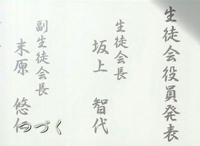 生徒会役員発表
生徒会長
坂上 智代
副生徒会長
末原 悠
つづく